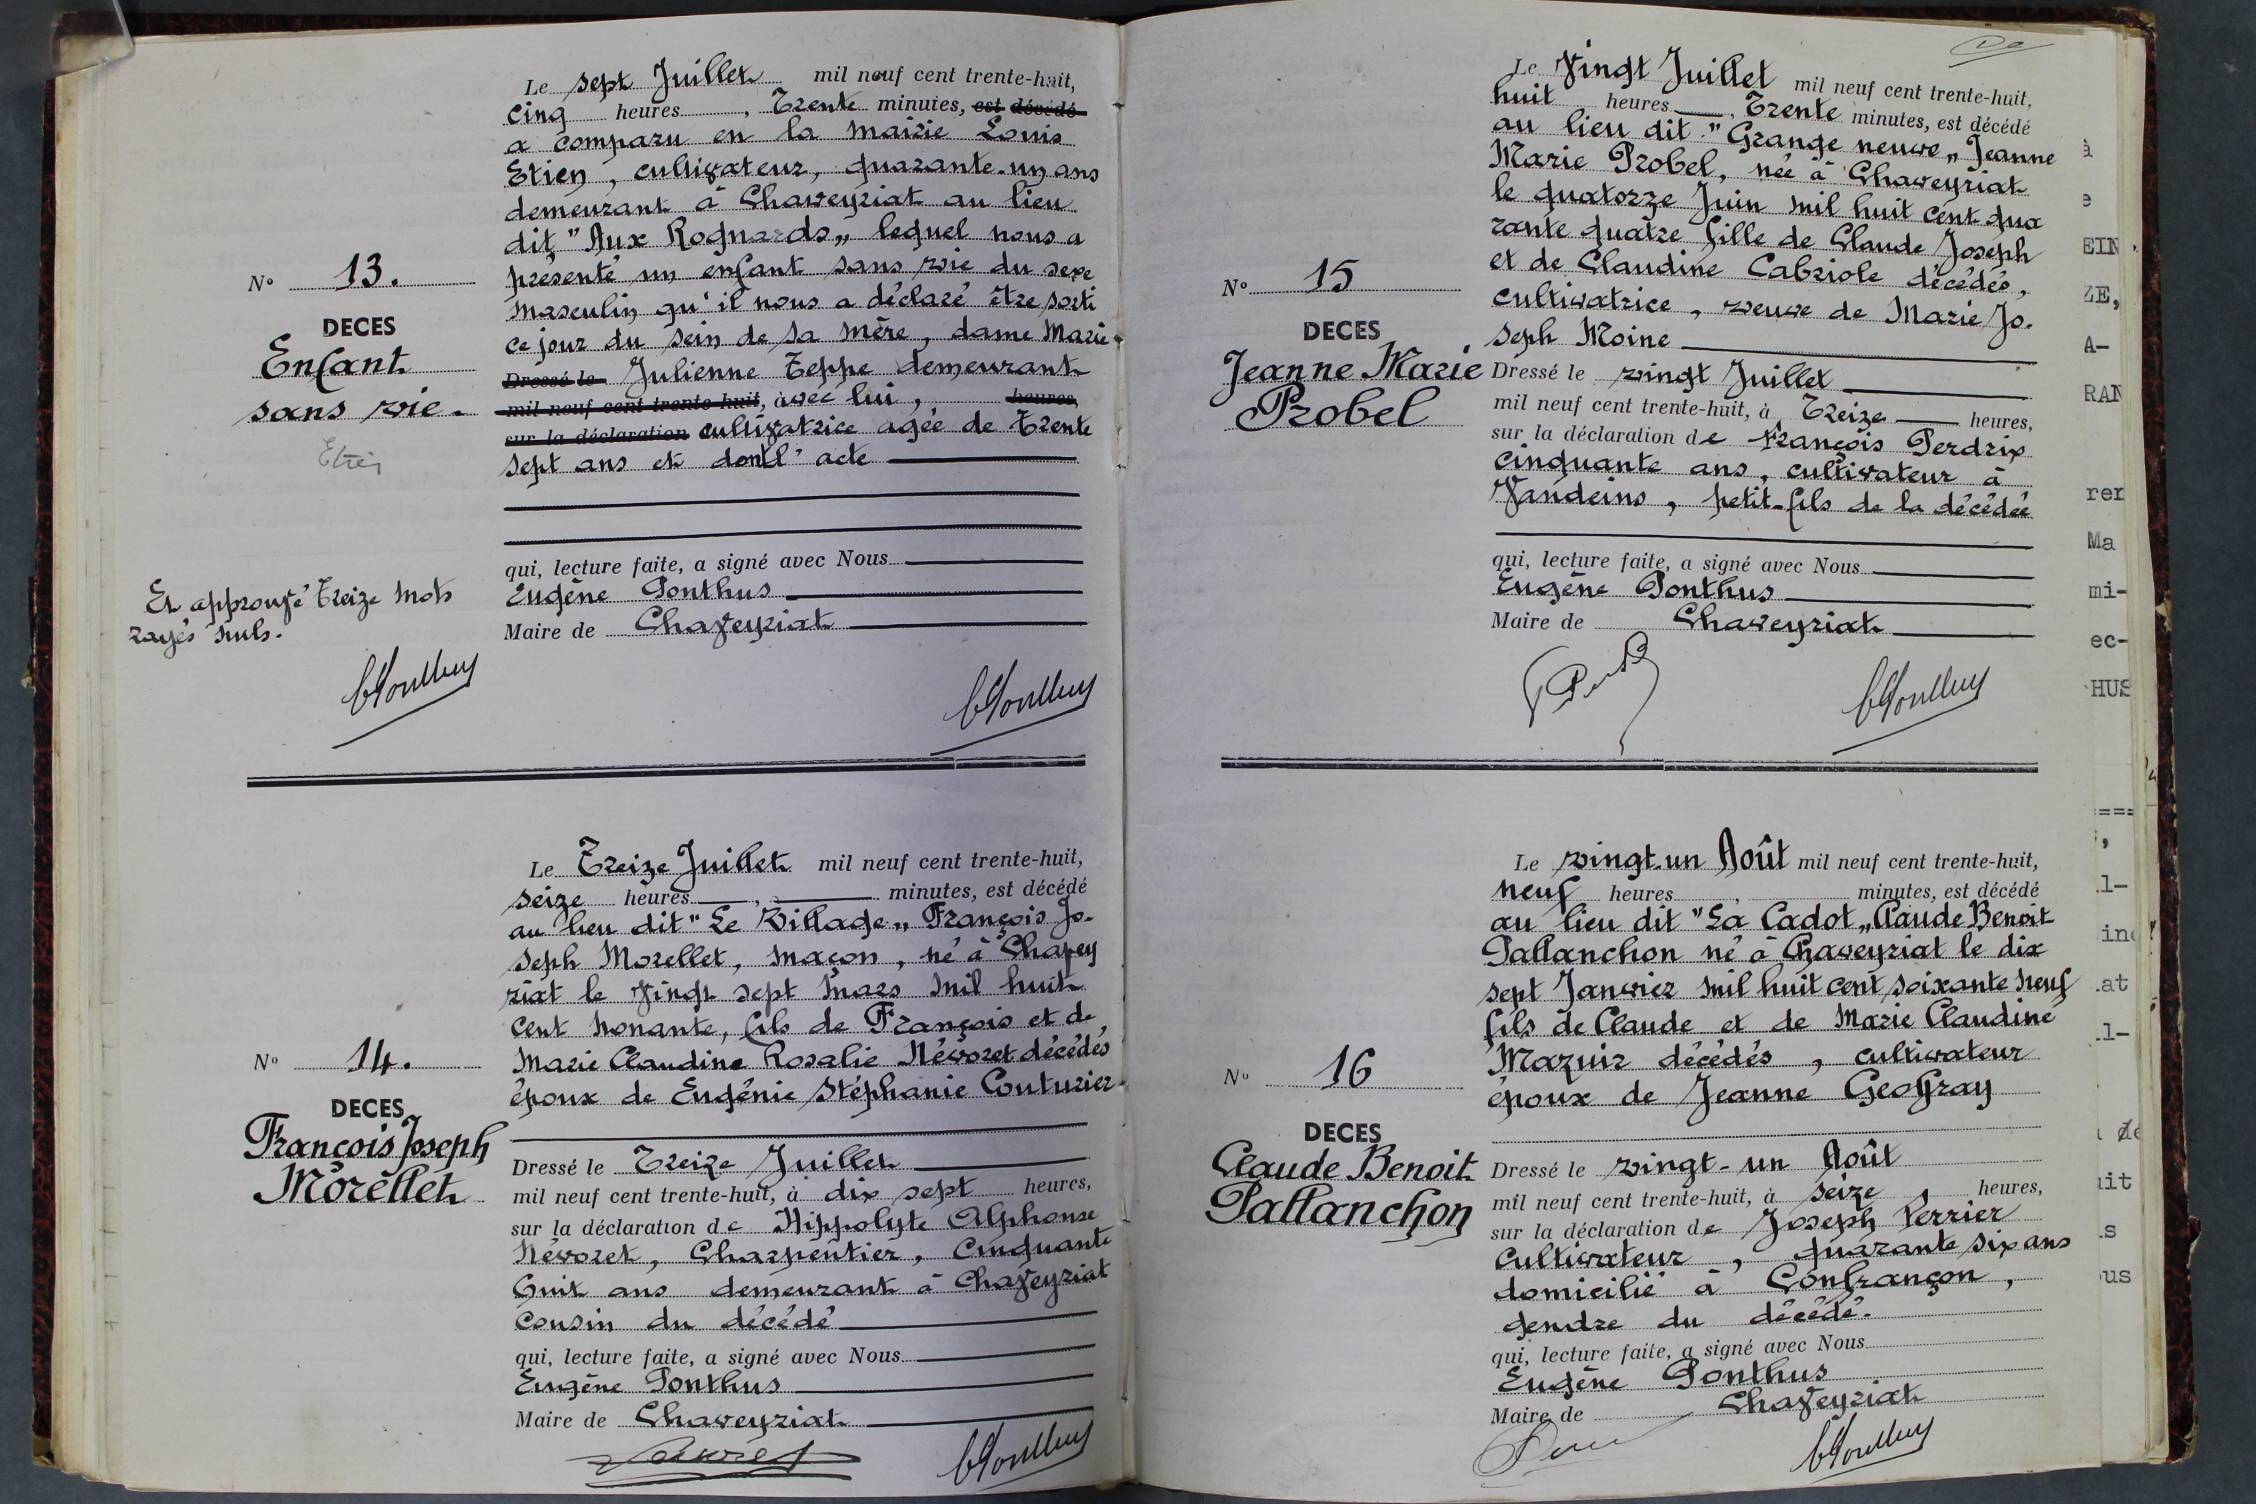 Le sept Juillet mil neuf cent trente-huit,
cinq heures, Trente minutes, est décédé
a comparu en la mairie Louis
Etien, cultivateur, quarante-un ans
demeurant à Chaveyriat au lieu
dit "Aux Rognards„ lequel nous a
présenté un enfant sans vie du sexe
masculin qu'il nous a déclaré être sorti
ce jour du sein de sa mère, dame Marie-
Dressé le Julienne Teppe demeurant
mil neuf cent trente-huit, à avec lui, heures,
sur la déclaration cultivatrice agée de Trente
sept ans et dont l'acte
qui, lecture faite, a signé avec Nous
Eugène Ponthus
Maire de Chaveyriat
N° 13.
DECES
Enfant
sans vie.
Etien
Et approuvé Treize mots
rayés nuls.
Le Treize Juillet mil neuf cent trente-huit,
seize heures, minutes, est décédé
au lieu dit "Le Village„ François Jo-
seph Morellet, maçon, né à Chavey
riat le vingt sept mars mil huit
cent nonante, fils de François et de
Marie Claudine Rosalie Névoret décédés
époux de Eugénie Stéphanie Couturier-
Dressé le Treize Juillet
mil neuf cent trente-huit, à dix sept heures,
sur la déclaration de Hippolyte Alphonse
Névoret, Charpentier, Cinquante
huit ans demeurant à Chaveyriat
cousin du décédé
qui, lecture faite, a signé avec Nous
Eugène Ponthus
Maire de Chaveyriat
N° 14.
DECES
François Joseph
Morellet
Le Vingt Juillet mil neuf cent trente-huit,
huit heures, Trente minutes, est décédé
au lieu dit "Grange neuve„ Jeanne
Marie Probel, née à Chaveyriat
le quatorze Juin mil huit cent qua
rante quatre fille de Claude Joseph
et de Claudine Cabriole décédés,
cultivatrice, veuve de Marie Jo-
seph Moine
Dressé le vingt Juillet
mil neuf cent trente-huit, à Treize heures,
sur la déclaration de François Perdrix
cinquante ans, cultivateur à
Vandeins, petit-fils de la décédée
qui, lecture faite, a signé avec Nous
Eugène Ponthus
Maire de Chaveyriat
N° 15
DECES
Jeanne Marie
Probel
Le vingt-un Août mil neuf cent trente-huit,
neuf heures, minutes, est décédé
au lieu dit "La Cadot„ Claude Benoit
Pallanchon né à Chaveyriat le dix
sept Janvier mil huit cent soixante neuf
fils de Claude et de Marie Claudine
Mazuir décédés, cultivateur
époux de Jeanne Geoffray
Dressé le vingt-un Août
mil neuf cent trente-huit, à seize heures,
sur la déclaration de Joseph Perrier
cultivateur, quarante six ans
domicilié à Confrançon,
gendre du décédé.
qui, lecture faite, a signé avec Nous
Eugène Ponthus
Maire de Chaveyriat
N° 16
DECES
Claude Benoit
Pallanchon